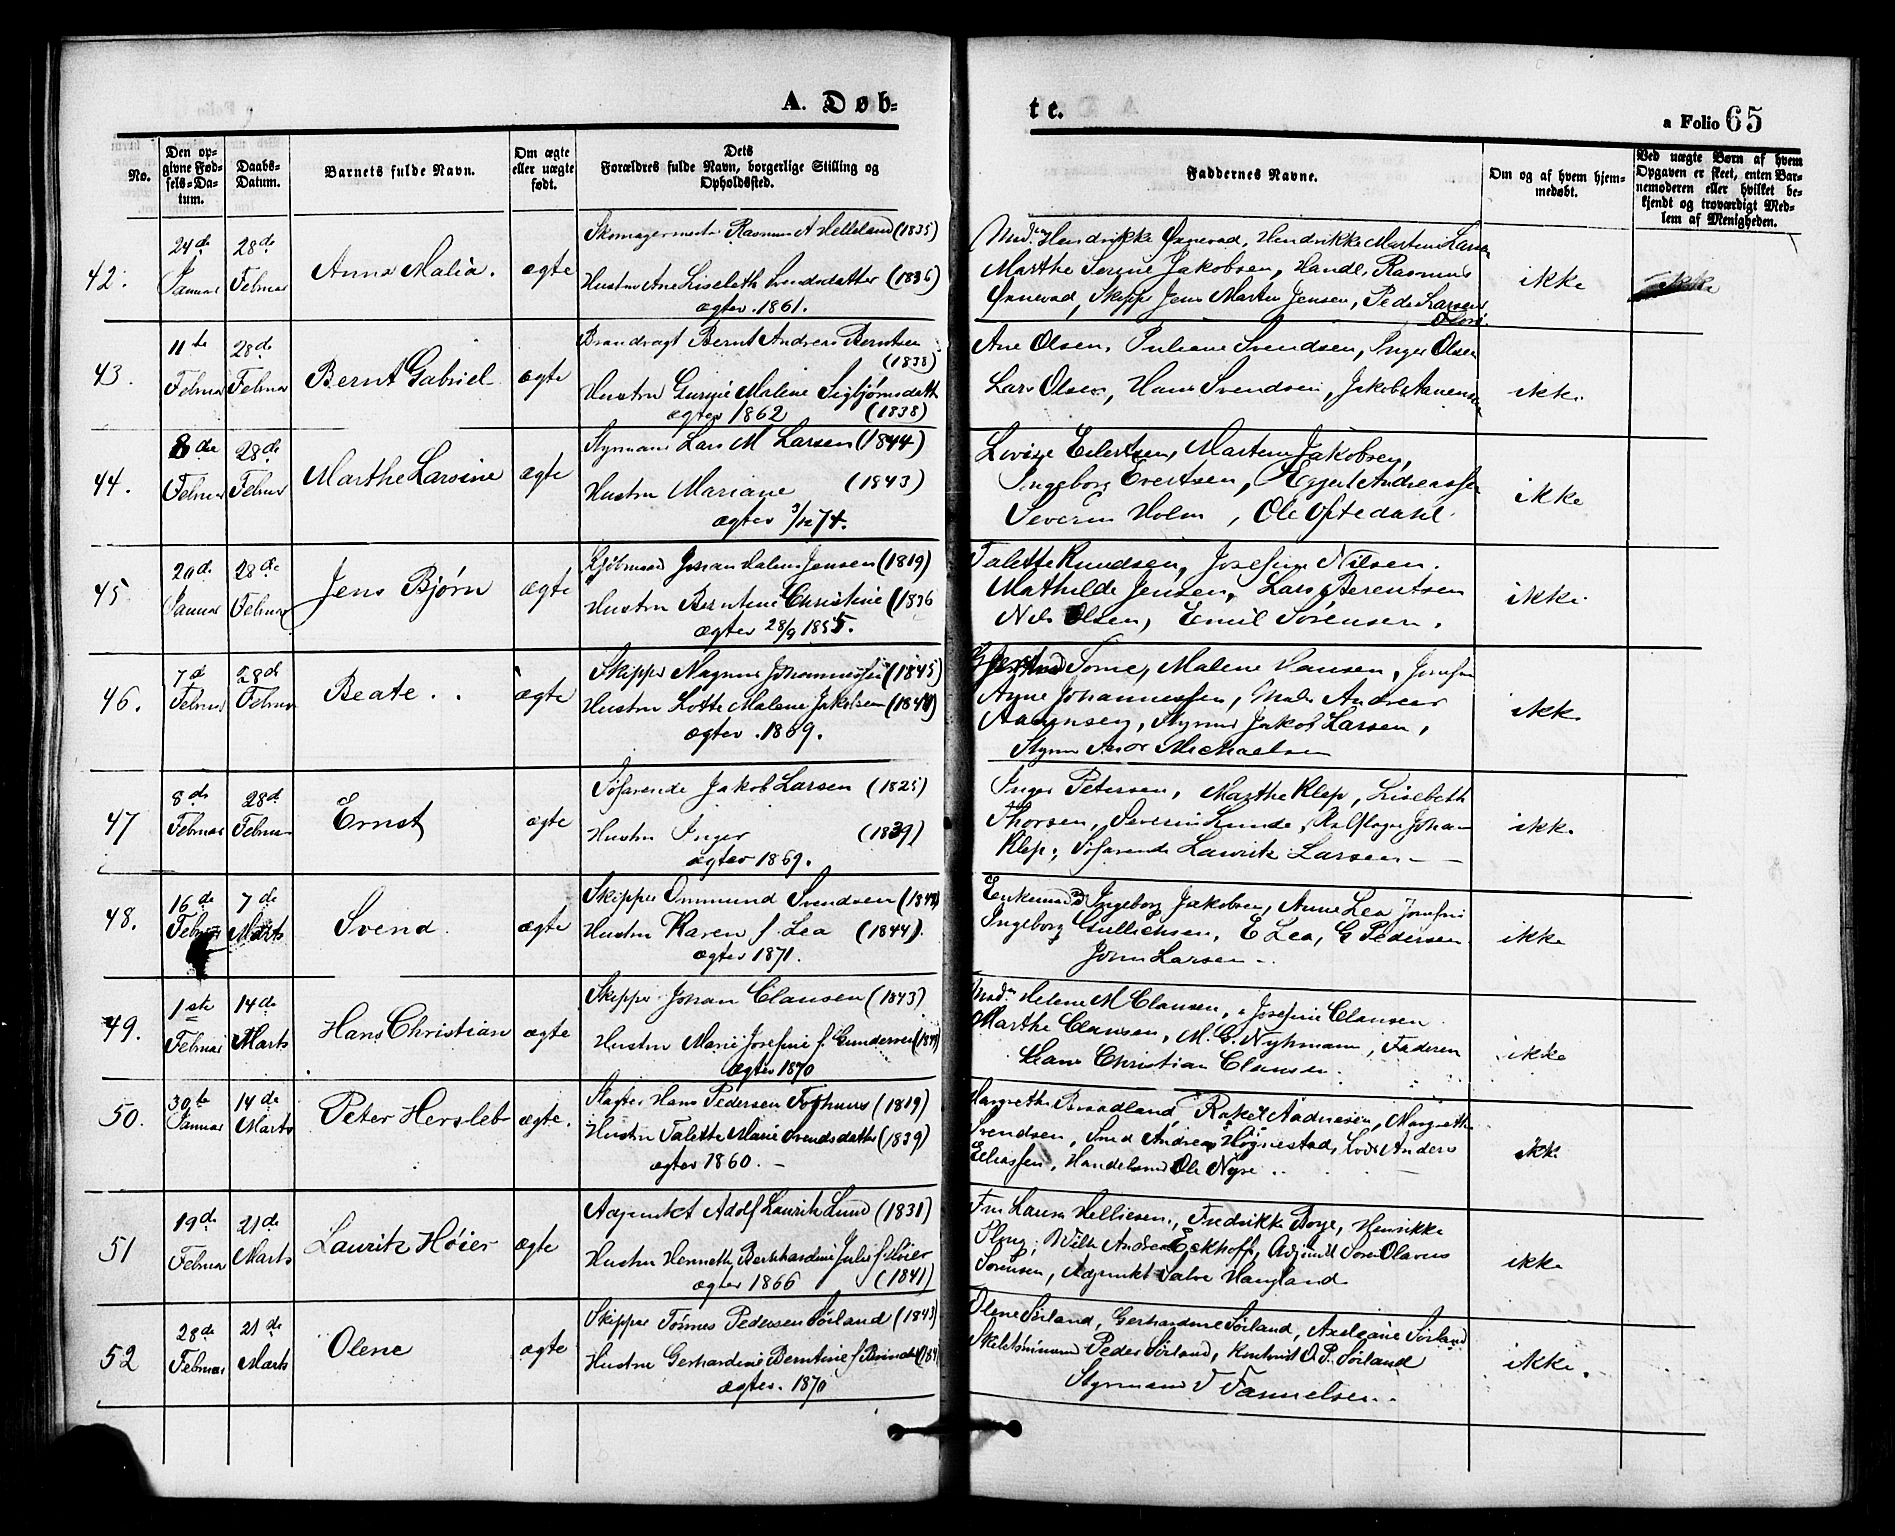 A. Døb-
te.
a Folio 65
No.
Den op-
givne Fød-
sels-Da-
tum.
Daabs-
Datum.
Barnets fulde Navn.
Om ægte
eller uægte
født.
Dets
Forældres fulde Navn, borgerlige Stilling og
Opholdssted.
Faddernes Navne.
Om og af hvem hjem-
medøbt.
Ved uægte Børn af hvem
Opgaven er skeet, enten Bar-
nemoderen eller hvilket be-
kjendt og troværdigt Med-
lem af Menigheden.
42.
24de
Januar
28de
Februar
Anna Malia.
ægte
Skomagermester Rasmus A Helleland (1835)
Hustru Ane Liselath Svendsdatter (1836)
ægtev. 1861.
Henrikke Martine Larsen
Marthe Serine Jakobsen, Handl. Rasmus
Skipp Jens Martin Jensen, Peder Larsen
ikke
ikke
43.
11te
Februar
28de
Februar
Bernt Gabriel
ægte
Brandvagt Bernt Andreas Berntsen
(1838)
Hustru Gurine Malene Sigbjørnsdatt
ægtev 1862 (1838)
Ane Olsen, Juliane Svendsen, Inger Olsen
Lars Olsen, Hans Svendsen, Jakob Aanensen
ikke.
44.
8de
Februar
28de
Februar
Marthe Lavine
ægte
Styrmand Lars M Larsen (1844)
Hustru Mariane (1843)
ægtev 3/12 74.
Lovise Eilertsen, Martine Jakobsen,
Ingeborg Evertsen, Eggert Andreassen
Severin Holm, Ole Oftedahl.
ikke
45.
20de
Januar
28de
Februar
Jens Bjørn
ægte
Kjøbmand Johan Jensen (1819)
Hustru Berntine Christine (1836
ægtev 28/9 1855.
Talette Knudsen, Josefine Nilsen.
Mathilde Jensen, Lars Berentsen
Nils Olsen, Emil Sørensen.
ikke.
46.
7d
Februar
28de
Februar
Beate..
ægte
Skipper Magnus Johannessen (1845)
Hustru Lotte Malene Jakobsen
ægtev. 1869.
Malene Hansen, Josefin
Anne Johannessen, Andreas
Aanensen, Styrmd Jakob Larsen,
Styrm Michaelsen
ikke.
47
8de
Februar
28de
Februar
Ernst
ægte
Søfarende Jakob Larsen (1825)
Hustru Inger (1839)
ægtev 1869.
Inger Petersen, Marthe Klep, Lisebeth
Thorsen, Severin Lunde, Johan
Klep., Søfarende Lauritz Larsen –
ikke.
48.
16de
Februar
7de
Marts
Svend.
ægte
Skipper Ommund Svendsen
Hustru Karen f. Lea (1844).
ægtev 1871.
Ingeborg Jakobsen, Anne Lea Josefine
Ingeborg Gullichsen, E Lea, G Pedersen
John Larsen –
ikke
49.
1ste
Februar
14de
Marts
Hans Christian
ægte
Skipper Johan Clausen (1843)
Hustru Marie Josefine f. Gundersen
ægtev 1870
Mad. Helene M Clausen, Josefine Clausen
Marthe Clausen, M. G. Nyhmann, Faderen
Hans Christian Clausen.
ikke
50.
30te
Januar
14de
Marts
Peter Hersleb
ægte.
Slagter Hans Pedersen Forhuus (1819)
Hustru Talette Marie Svendsdatter (1839)
ægtev 1860. –
Margrethe Braadland, Rakel Aadnesen, Margrethe
Svendsen, Smed Andreas Høgnestad, Lods Anders
Eliassen, Handelsmd Ole Nyse..
ikke
51
19de
Februar
21de
Marts
Lauritz Høier
ægte
Adjunkt Adolf Lauritz Lund (1831)
Hustru Hennette Bernhardine Julie f Høier
ægtev 1866 (1841)
Fru Laura Helliesen, Fredrikke Boye, Henrikke
Andreas Eckhoff, Adjunkt Søren Olavus
Sørensen, Adjunkt Salve Haugland
ikke
52
28de
Februar
21de
Marts
Olene
ægte
Skipper Tønnes Pedersen Sørland (1843)
Hustru Gerhardine Berntine
ægtev. 1870
Olene Sørland, Gerhardine Sørland, Axeliane Sørland
Peder Sørland, Kontorist O P. Sørland
Styrmand T Samuelsen.
ikke.